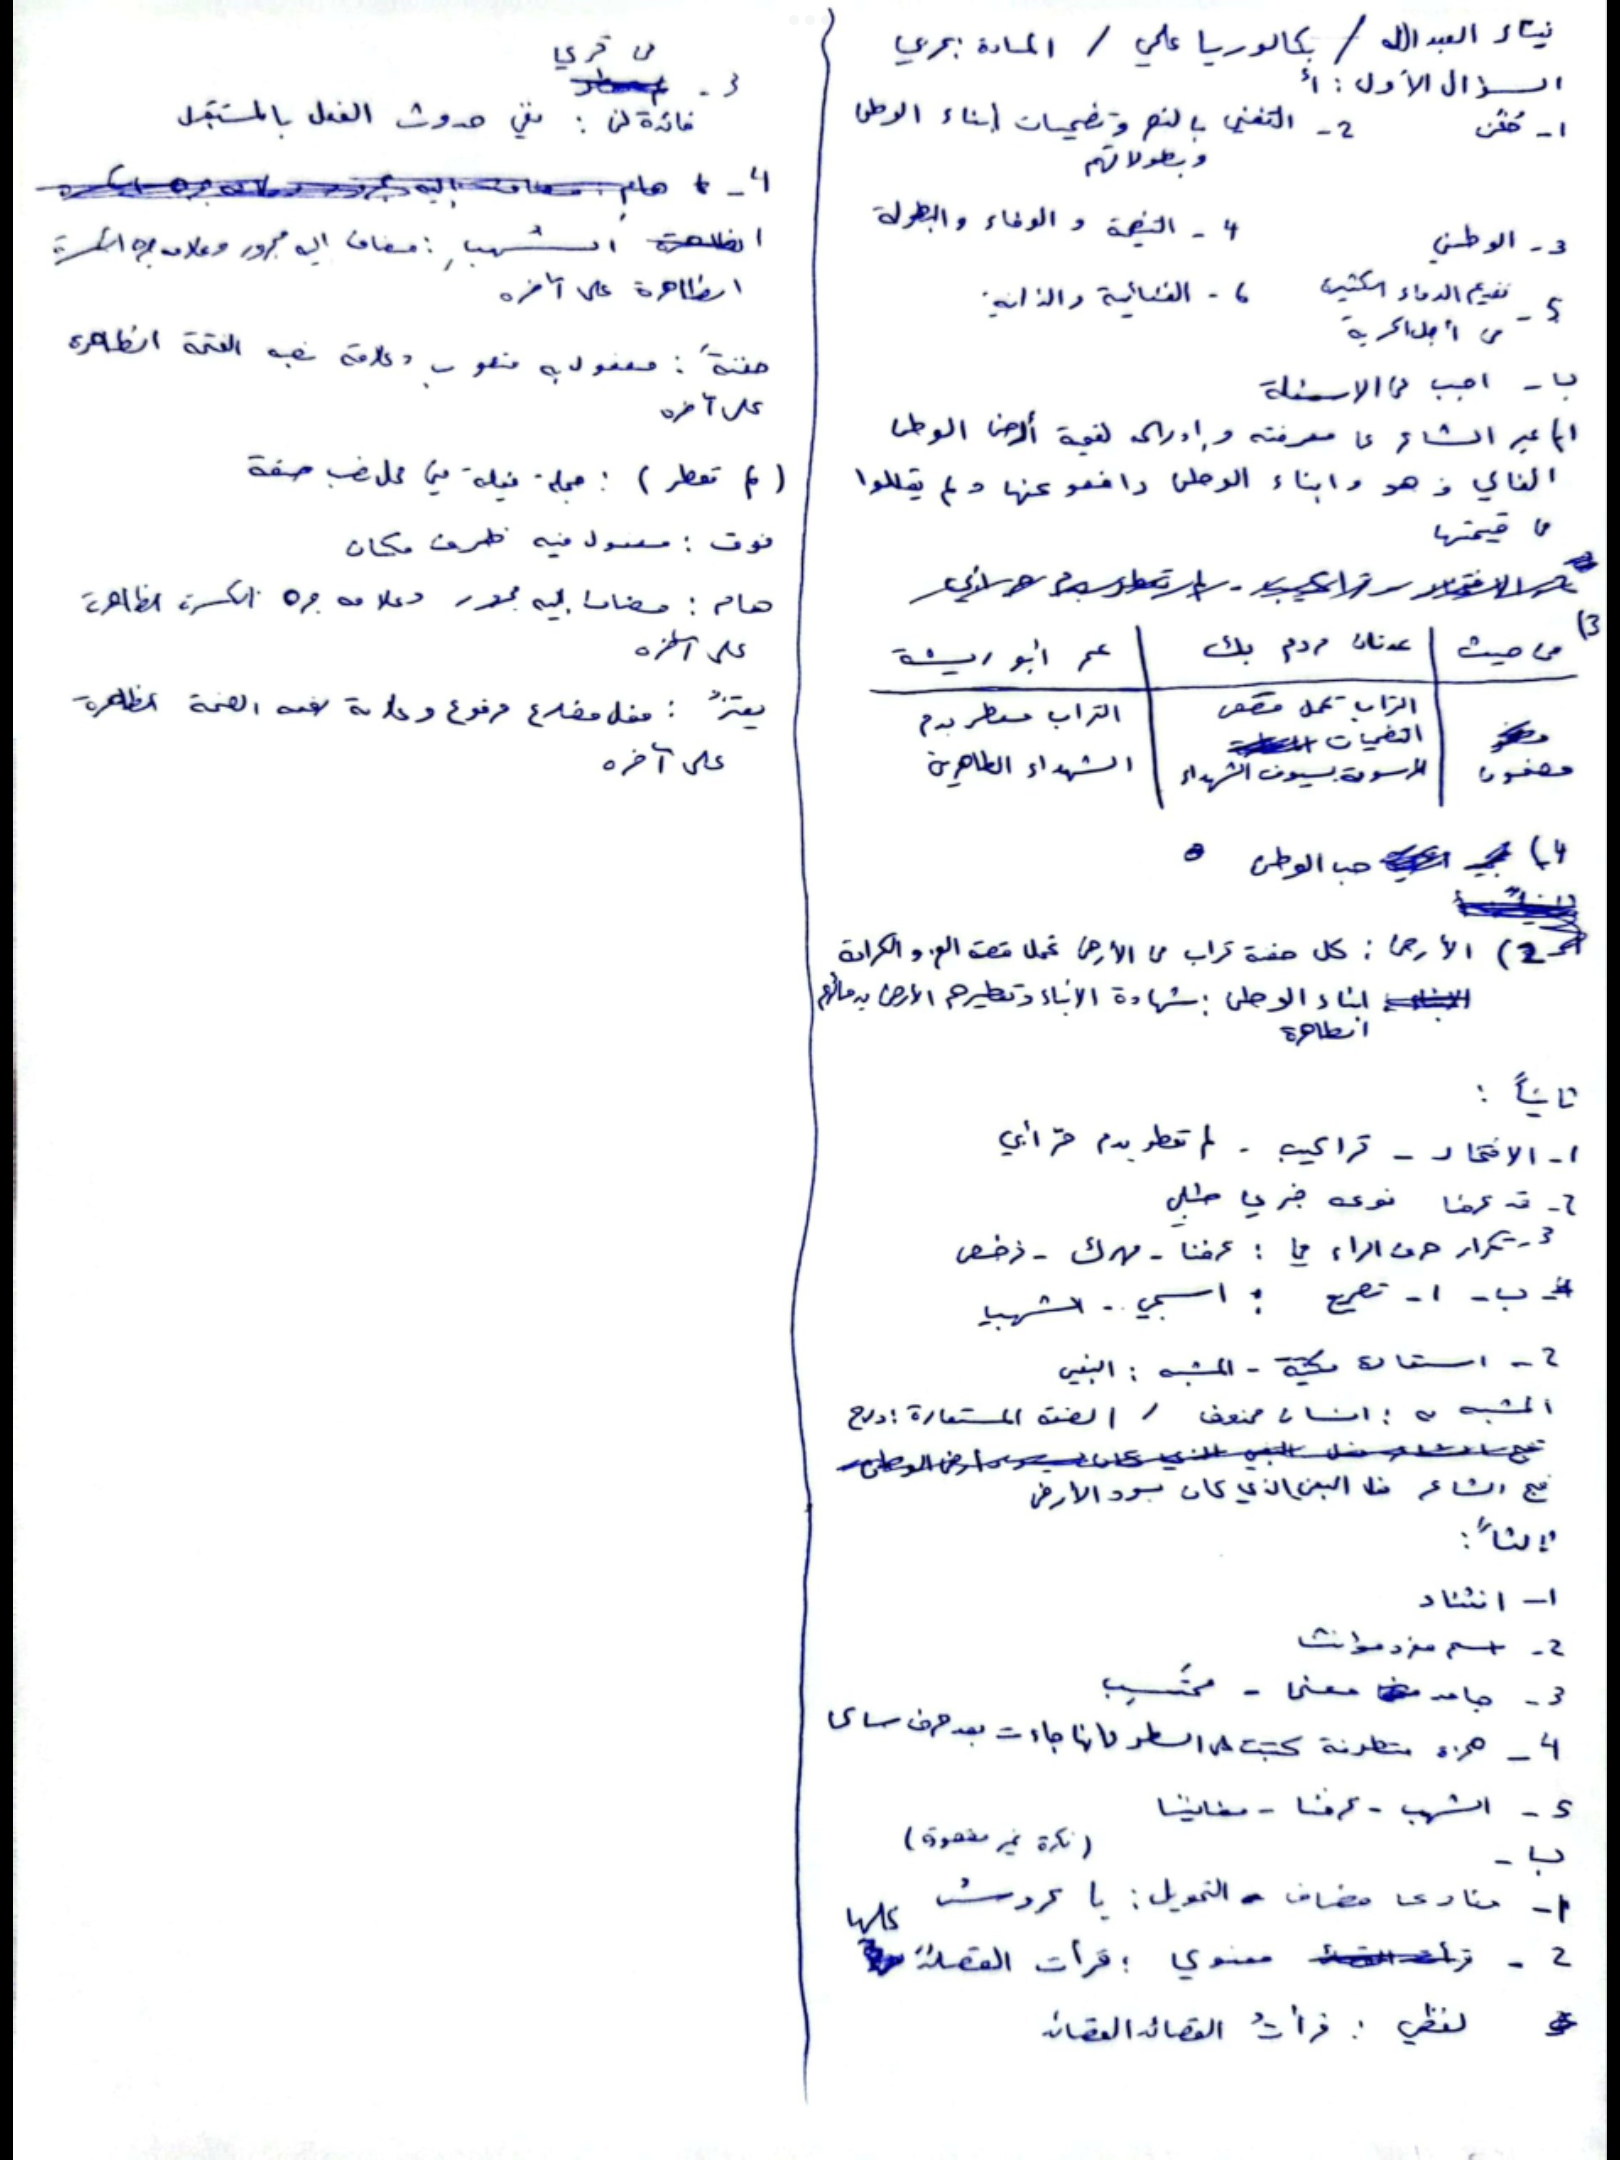 العبدالله / بكالوريا علمي / المادة: عربي
السؤال الأول: أ
1- 2- التغني بالنصر وتضحيات أبناء الوطن
وبطولاتهم
3- الوطني 4- التضحية والوفاء والبطولة
5- تقديم الدماء الكثيرة 6- الغنائية والذاتية
من أجل الحرية
ب- اجب عن الاسئلة
1) عبر الشاعر عن معرفته وإدراكه لقيمة أرض الوطن
الغالي فهو وابناء الوطن دافعو عنها ولم يقللوا
من قيمتها
3) من حيث | عدنان مردم بك | عمر أبو ريشة
مضمون | التراب تحمل قصص | التراب معطر بدم
التضحيات | الشهداء الطاهرين
المرسومة بسيوف الشهداء
4) حب الوطن
2) الأرض: كل حفنة تراب من الأرض تحمل قصة العز والكرامة
ابناء الوطن: شهادة الأبناء وتعطيرهم الأرض بدمائهم
الطاهرة
ثانياً:
1- الافتخار - تراكيب - لم تعطر بدم حرّ أبي
2- قد عرفنا نوعه خبري طلبي
3- تكرار حرف الراء في: عرفنا - مهرك - نرخص
ب- 1- تصريع: اسحبي - الشهب
2- استعارة مكنية - المشبه: البغي
المشبه به: انسان / الصفة المستعارة: درج
الشاعر البغي الذي كان يسود الأرض
ثالثاً:
1-
2- اسم مفرد مؤنث
3- جامد معنى -
4- همزة متطرفة كتبت على السطر لأنها جاءت بعد حرف ساكن
5- الشهب - عرفنا - مغانينا
ب- (نكرة غير مقصودة)
1- منادى مضاف - التحويل: يا عروس
2- معنوي: قرأت القصائد كلها
لفظي: قرأتُ القصائد القصائد
3- من
فائدة لن: نفي حدوث الفعل بالمستقبل
4-
الشهبِ: مضاف إليه مجرور وعلامة جره الكسرة
الظاهرة على آخره
حفنةً: مفعول به منصوب وعلامة نصبه الفتحة الظاهرة
على آخره
(لم تعطر): جملة فعلية في محل نصب صفة
فوق: مفعول فيه ظرف مكان
هام: مضاف إليه مجرور وعلامة جره الكسرة الظاهرة
على آخره
يعتزُ: فعل مضارع مرفوع وعلامة رفعه الضمة الظاهرة
على آخره